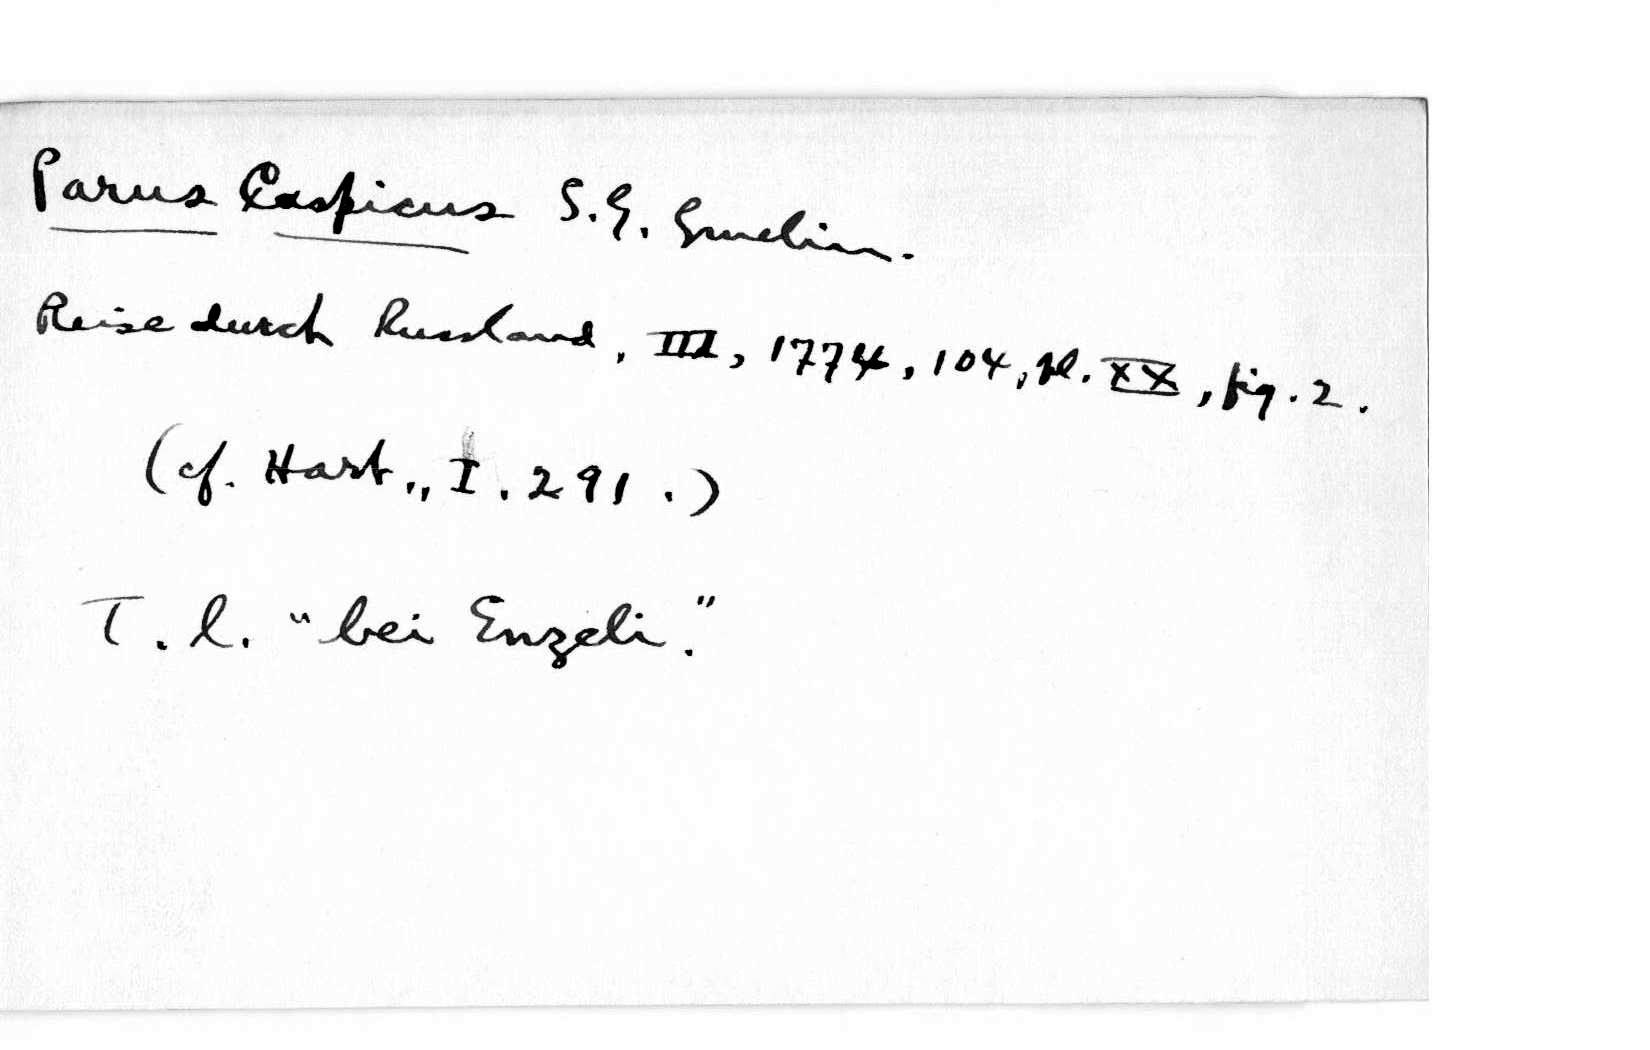 Parus Caspicus S.G. Gmelin.
Reise durch Russland, III, 1774, 104, pl. XX, fig. 2.
(cf. Hart., I. 291.)
T. l. "bei Enzeli."